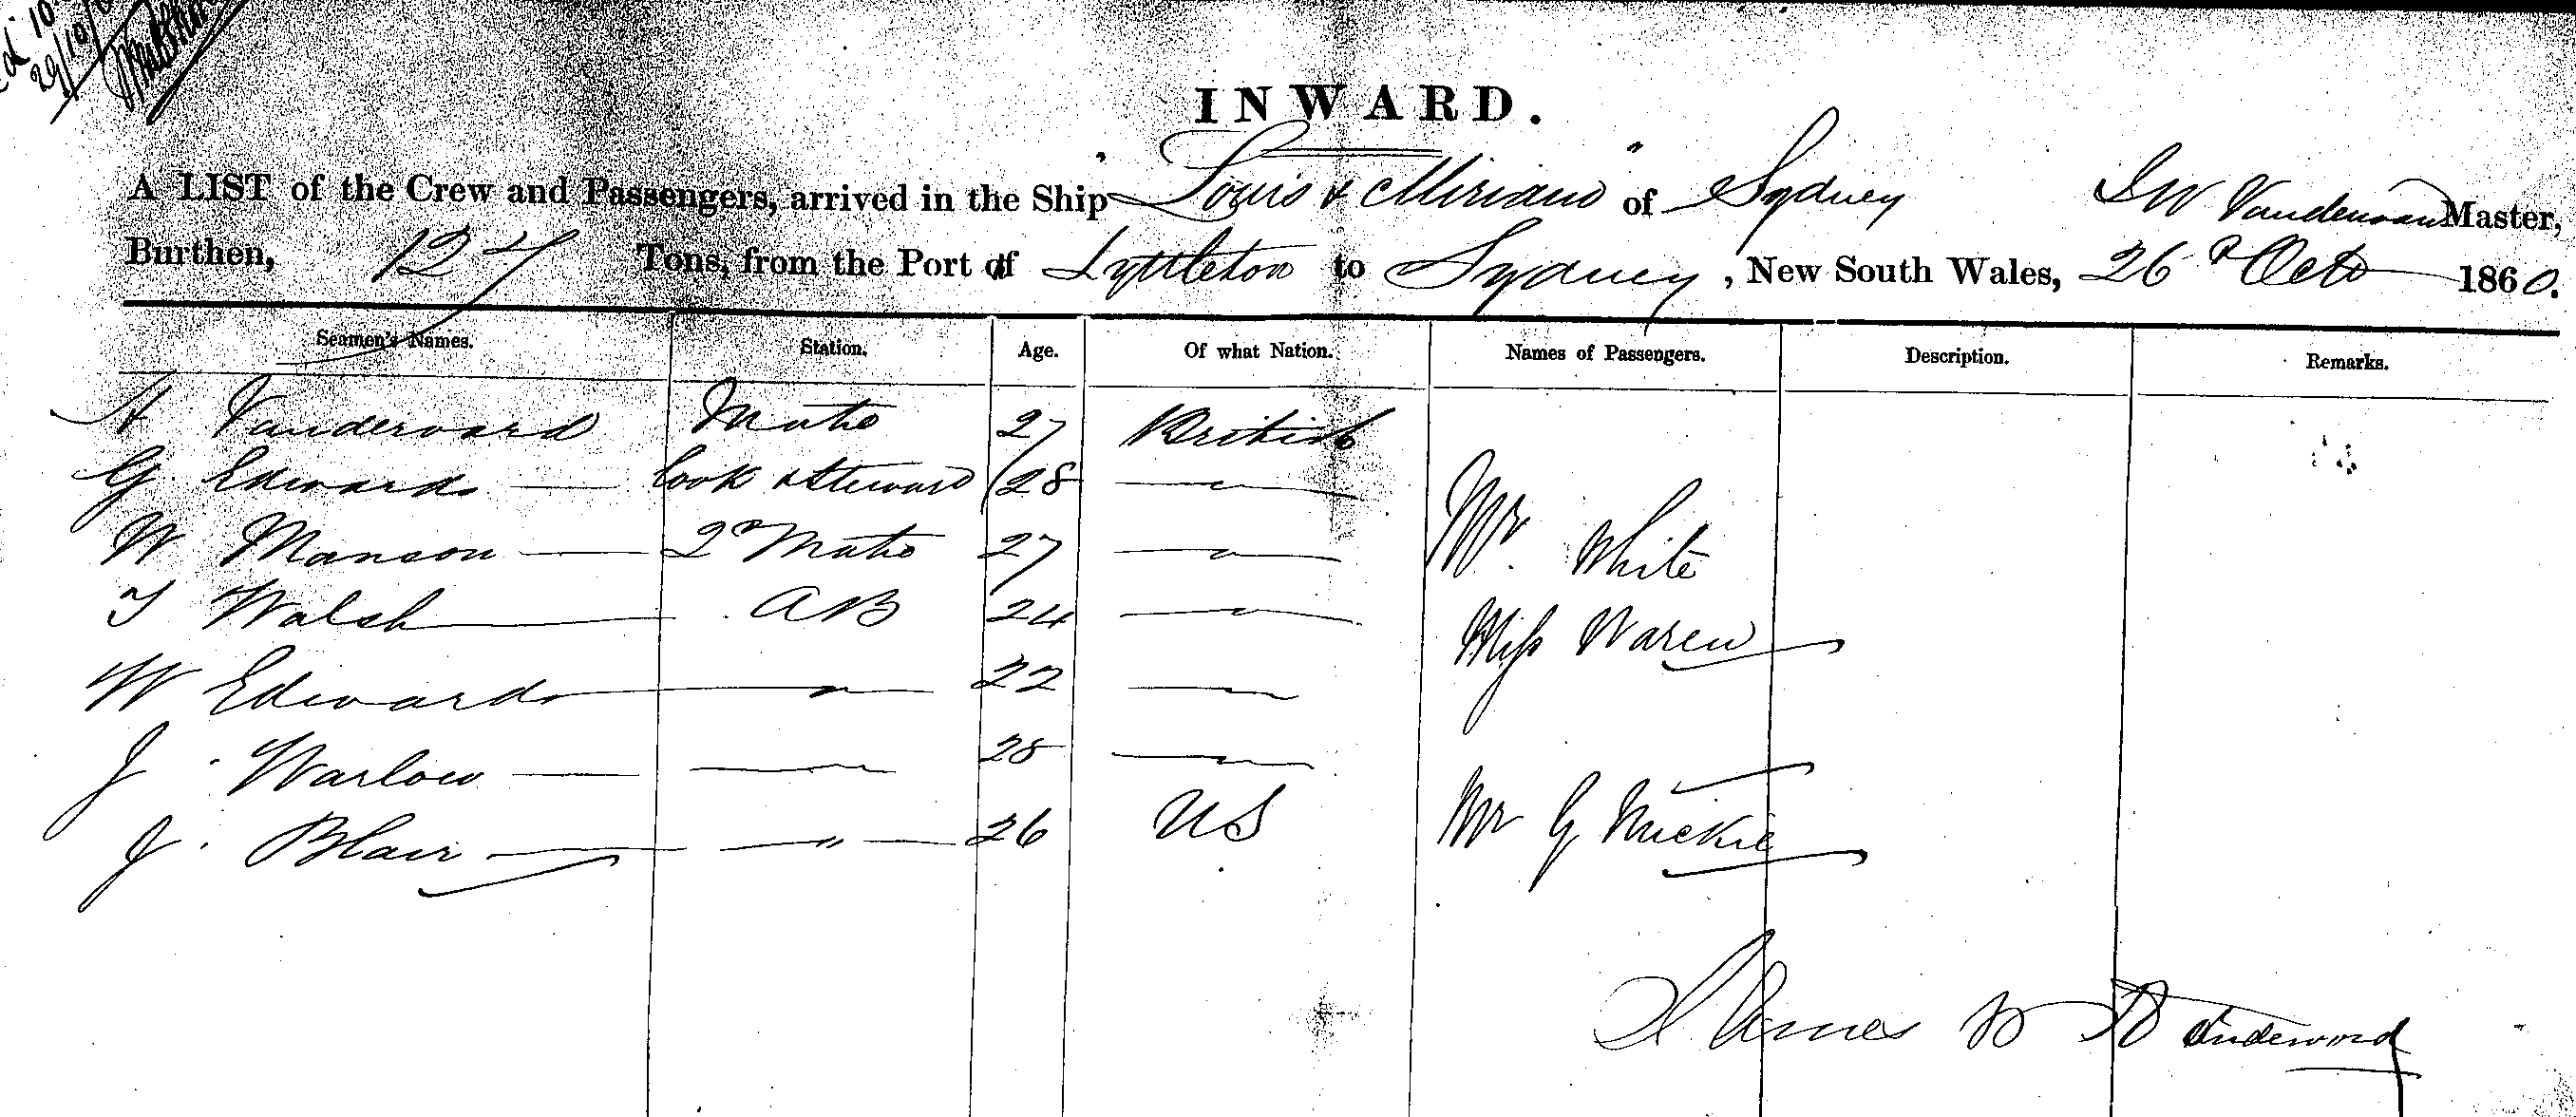 29/10/
INWARD.
A LIST of the Crew and Passengers, arrived in the Ship "Louis & Miriam" of Sydney J W Vanderward Master,
Burthen, 127 Tons, from the Port of Lyttleton to Sydney, New South Wales, 26th Octo 1860.
Seamen's Names. Station. Age. Of what Nation. Names of Passengers. Description. Remarks.
A Vandervard Mate 27 British
G Edwards — Cook & Steward 28 —"—
W Manson — 2d Mate 27 —"— Mr. White
T Walsh — AB 24 —"— Miss Waren
W Edwards —"— 22 —"—
J. Warlow — —"— 28 —"—
J. Blair — —"— 26 US Mr G Mickie
James W Vanderward